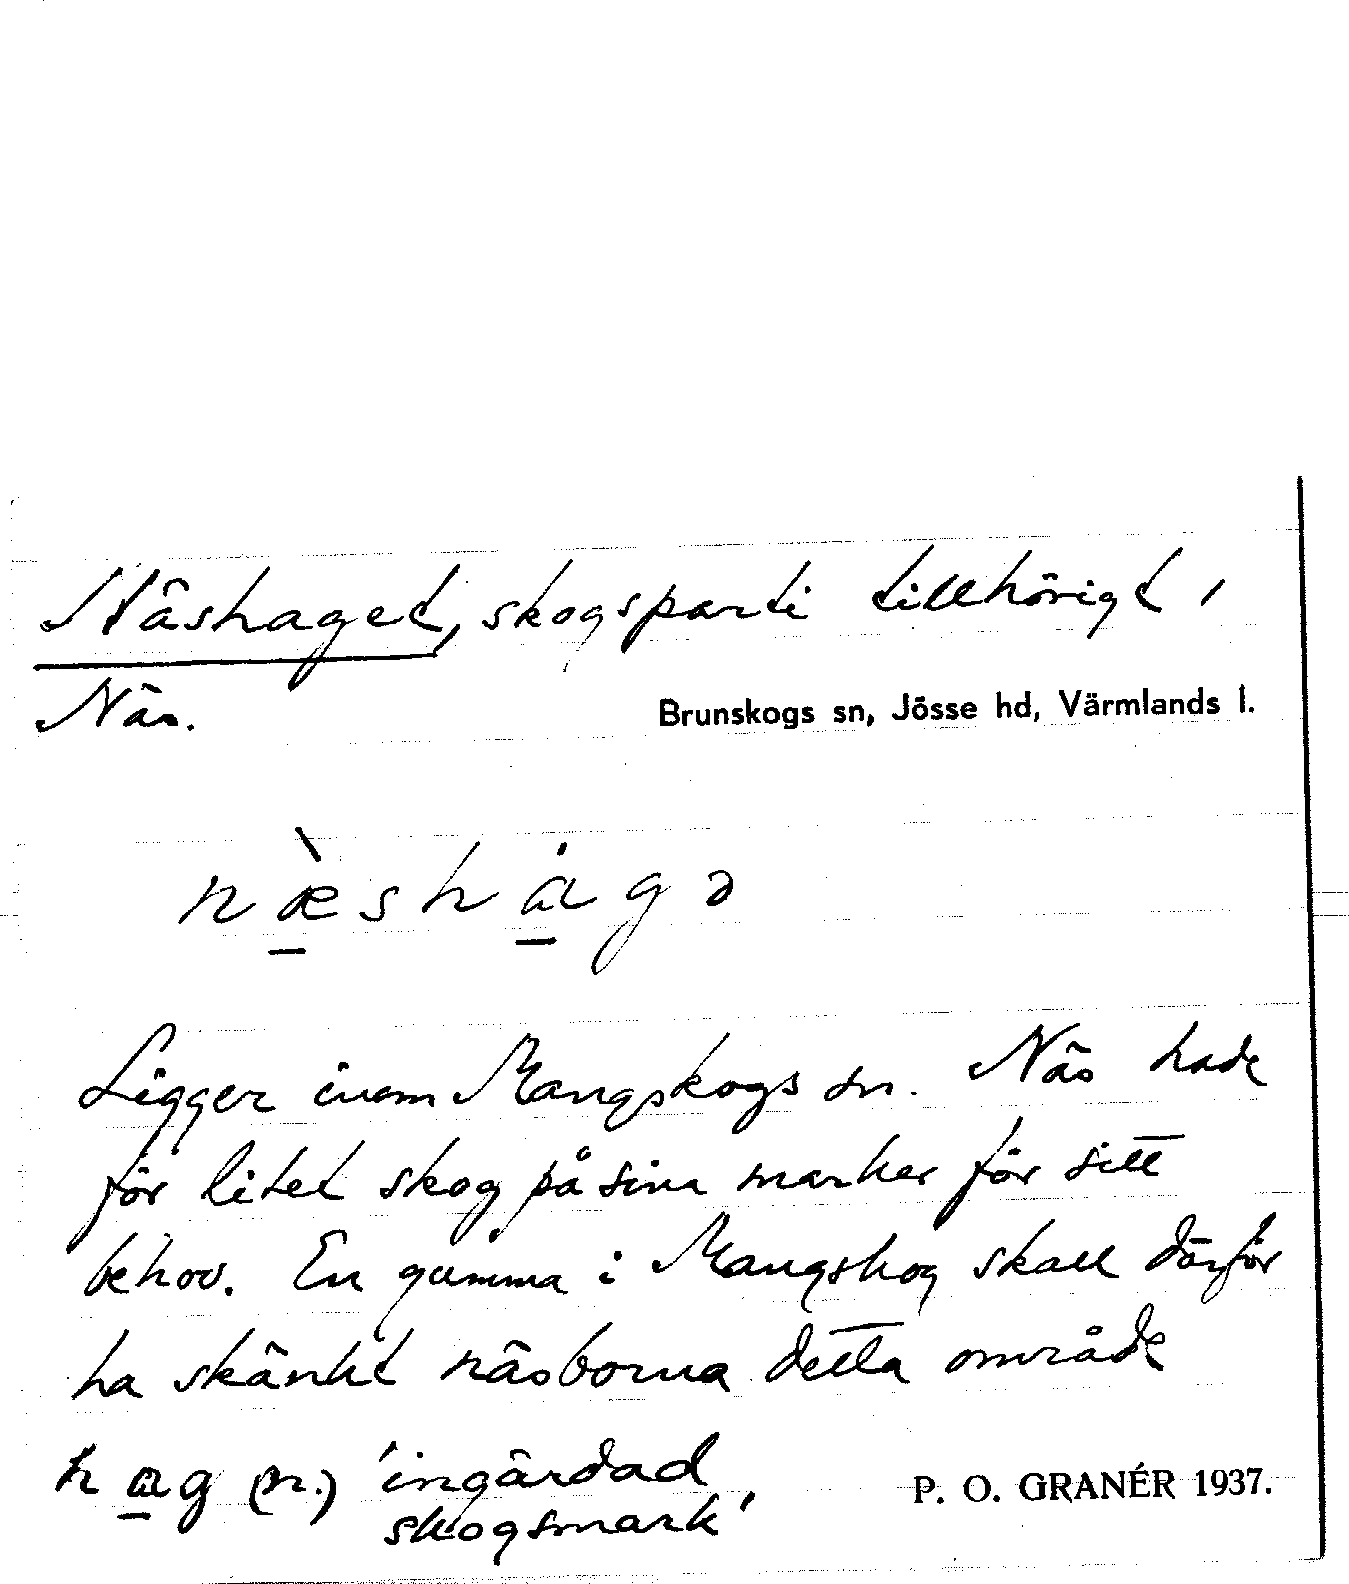 Näshaget, skogsparti tillhörigt
Näs.
Brunskogs sn, Jösse hd, Värmlands l.
næ̱̀shȧ̱gə
Ligger inom Mangskogs sn. Näs hade
för litet skog på sina marker för sitt
behov. En gumma i Mangskog skall därför
ha skänkt näsborna detta område
ha̱g (n.) 'ingärdad
skogsmark'
P. O. GRANÉR 1937.